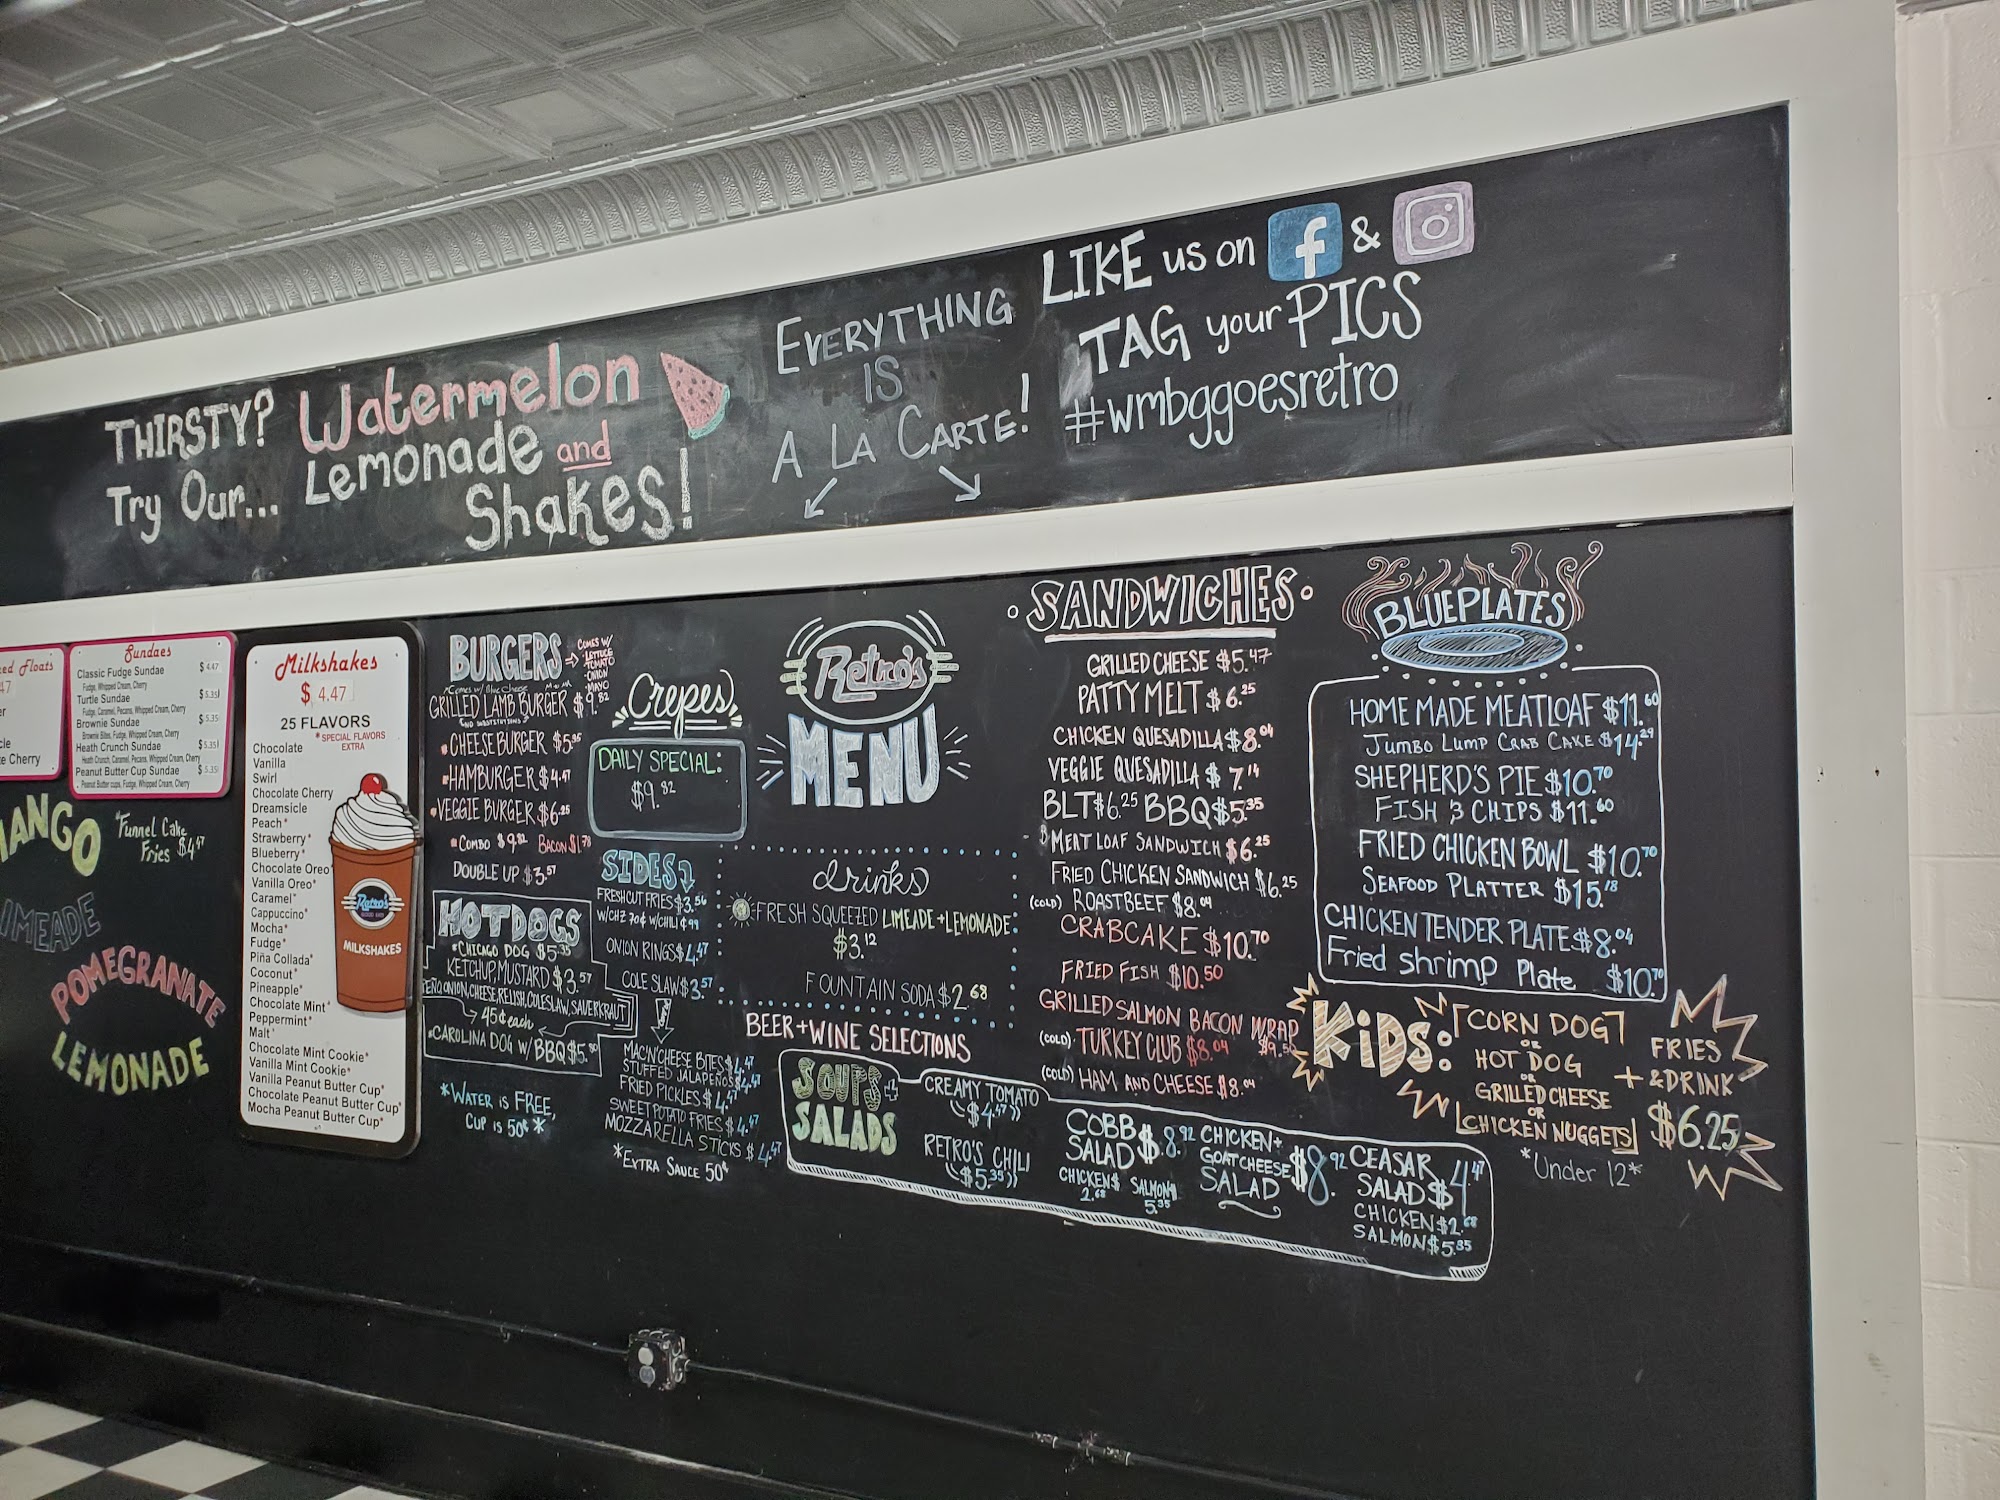 THIRSTY?
Try Our...
Watermelon
Lemonade and
Shakes!
EVERYTHING
IS
A LA CARTE!
LIKE us on f &
TAG your PICS
#wmbggoesretro
Floats
Cherry
Sundaes
Classic Fudge Sundae $ 4.47
Fudge, Whipped Cream, Cherry
Turtle Sundae $ 5.35
Fudge, Caramel, Pecans, Whipped Cream, Cherry
Brownie Sundae $ 5.35
Brownie Bites, Fudge, Whipped Cream, Cherry
Heath Crunch Sundae $ 5.35
Heath Crunch, Caramel, Pecans, Whipped Cream, Cherry
Peanut Butter Cup Sundae $ 5.35
Peanut Butter cups, Fudge, Whipped Cream, Cherry
"Funnel Cake
Fries $4.47
POMEGRANATE
LEMONADE
Milkshakes
$ 4.47
25 FLAVORS
*SPECIAL FLAVORS
EXTRA
Chocolate
Vanilla
Swirl
Chocolate Cherry
Dreamsicle
Peach*
Strawberry*
Blueberry*
Chocolate Oreo*
Vanilla Oreo*
Caramel*
Cappuccino*
Mocha*
Fudge*
Piña Collada*
Coconut*
Pineapple*
Chocolate Mint*
Peppermint*
Malt*
Chocolate Mint Cookie*
Vanilla Mint Cookie*
Vanilla Peanut Butter Cup*
Chocolate Peanut Butter Cup*
Mocha Peanut Butter Cup*
Retro's
MILKSHAKES
BURGERS
COMES W/
LETTUCE
TOMATO
ONION
MAYO
GRILLED LAMB BURGER $9.82
CHEESE BURGER $5.35
HAMBURGER $4.47
VEGGIE BURGER $6.25
COMBO $9.82 BACON $1.78
DOUBLE UP $3.57
HOTDOGS
*CHICAGO DOG $5.35
KETCHUP, MUSTARD $3.57
ONION, CHEESE, RELISH, COLESLAW, SAUERKRAUT
45¢ each
CAROLINA DOG W/ BBQ $5.80
*WATER IS FREE,
CUP IS 50¢*
Crepes
DAILY SPECIAL:
$9.82
SIDES
FRESH CUT FRIES $3.56
W/CHZ 70¢ W/CHILI ¢99
ONION RINGS $4.47
COLE SLAW $3.57
MAC'N'CHEESE BITES $4.47
STUFFED JALAPEÑOS $4.47
FRIED PICKLES $4.47
SWEET POTATO FRIES $4.47
MOZZARELLA STICKS $4.47
*EXTRA SAUCE 50¢
Retro's
MENU
drinks
FRESH SQUEEZED LIMEADE + LEMONADE:
$3.12
FOUNTAIN SODA $2.68
BEER + WINE SELECTIONS
SOUPS +
SALADS
CREAMY TOMATO
$4.47
RETRO'S CHILI
$5.35
COBB
SALAD $8.92
CHICKEN $
2.68
SALMON
5.35
CHICKEN +
GOAT CHEESE
SALAD $8.92
CEASAR
SALAD $4.47
CHICKEN $2.68
SALMON $5.35
SANDWICHES
GRILLED CHEESE $5.47
PATTY MELT $6.25
CHICKEN QUESADILLA $8.04
VEGGIE QUESADILLA $7.14
BLT $6.25 BBQ $5.35
MEAT LOAF SANDWICH $6.25
FRIED CHICKEN SANDWICH $6.25
(COLD) ROAST BEEF $8.04
CRABCAKE $10.70
FRIED FISH $10.50
GRILLED SALMON BACON WRAP
(COLD) TURKEY CLUB $8.04
(COLD) HAM AND CHEESE $8.04
BLUEPLATES
HOME MADE MEATLOAF $11.60
JUMBO LUMP CRAB CAKE $14.29
SHEPHERD'S PIE $10.70
FISH & CHIPS $11.60
FRIED CHICKEN BOWL $10.70
SEAFOOD PLATTER $15.18
CHICKEN TENDER PLATE $8.04
Fried shrimp Plate $10.70
KIDS:
CORN DOG
OR
HOT DOG
OR
GRILLED CHEESE
OR
CHICKEN NUGGETS
+
FRIES
& DRINK
$6.25
*Under 12*